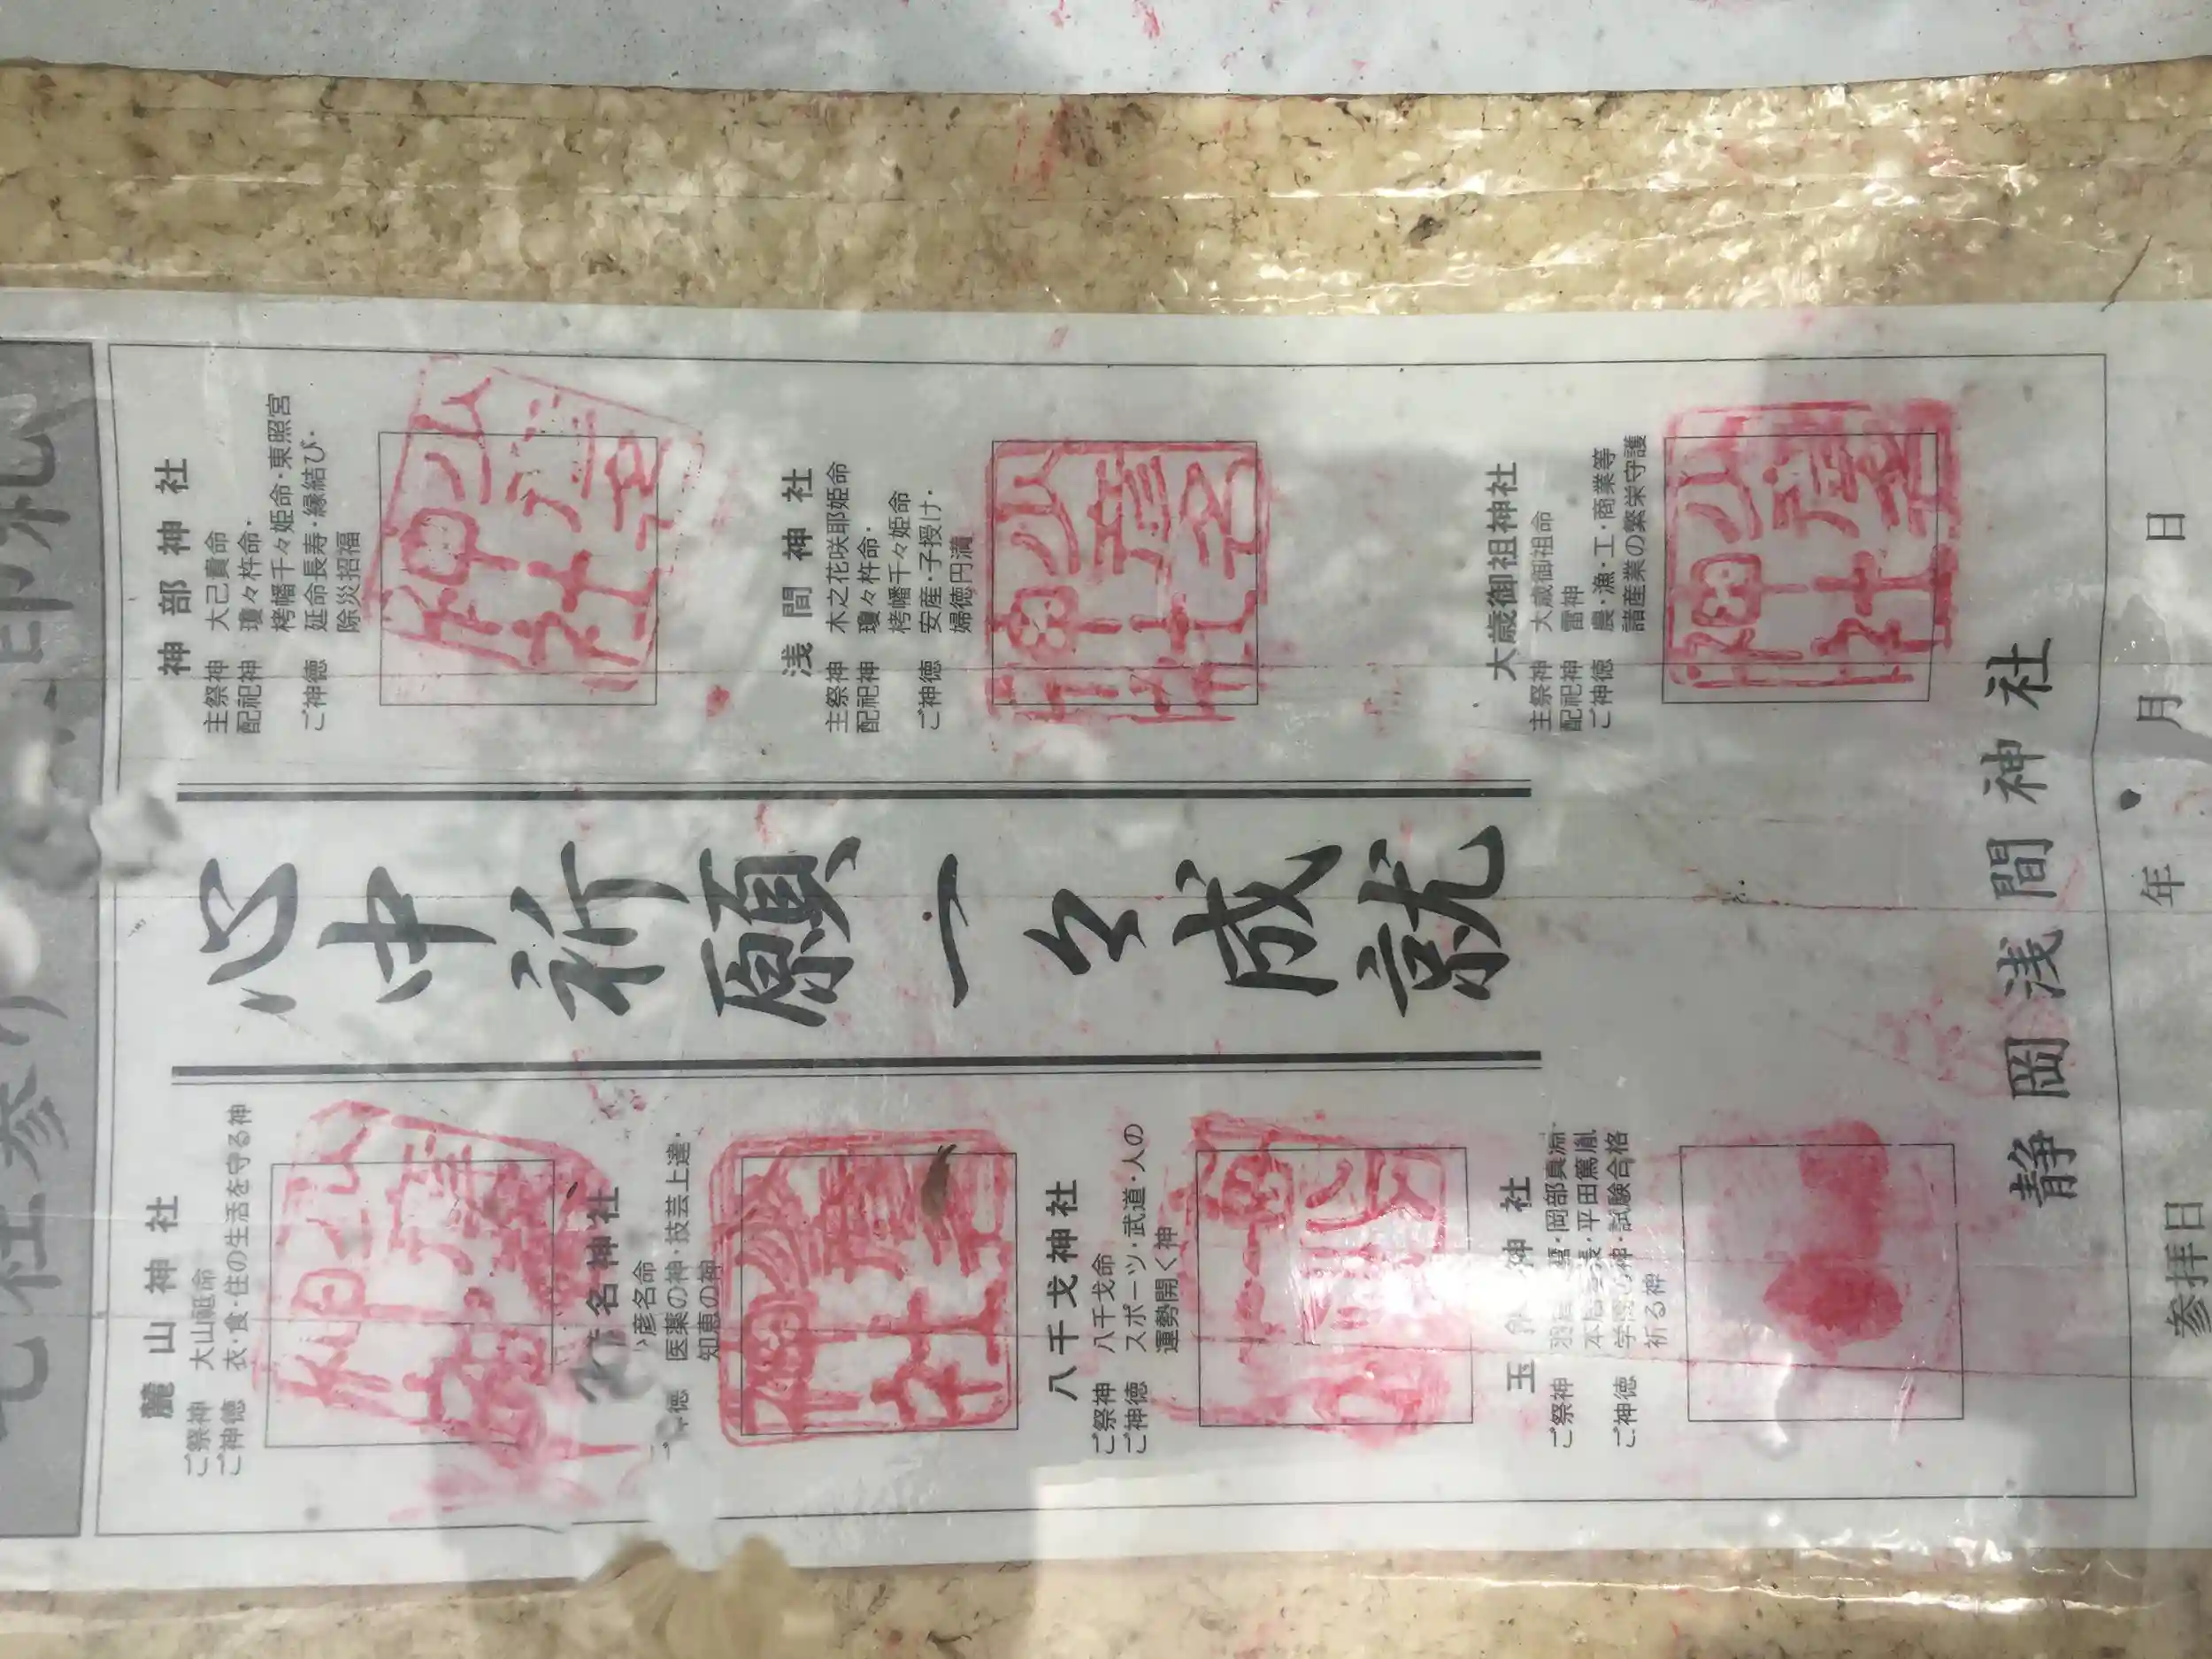 七社参り
印札
麓山神社
ご祭神 大山祗命
ご神徳 衣・食・住の生活を守る神
名神社
彦名命
徳 医薬の神・技芸上達・
知恵の神
八千戈神社
ご祭神 八千戈命
ご神徳 スポーツ・武道・人の
運勢開く神
玉 神社
ご祭神 ・岡部真淵
・平田篤胤
ご神徳 ・試験合格
祈る神
心中祈願一々成就
神部神社
主祭神 大己貴命
配祀神 瓊々杵命・
栲幡千々姫命・東照宮
ご神徳 延命長寿・縁結び・
除災招福
浅間神社
主祭神 木之花咲耶姫命
配祀神 瓊々杵命・
栲幡千々姫命
ご神徳 安産・子授け・
婦徳円満
大歳御祖神社
主祭神 大歳御祖命
配祀神 雷神
ご神徳 農・漁・工・商業等
諸産業の繁栄守護
静岡浅間神社
参拝日 年 月 日